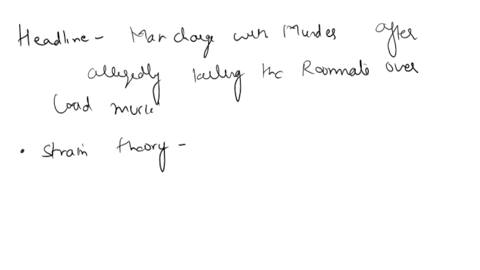 Headline - Man charge with Murder after
allegedly killing the Roommate over
Loud music
• Strain theory -